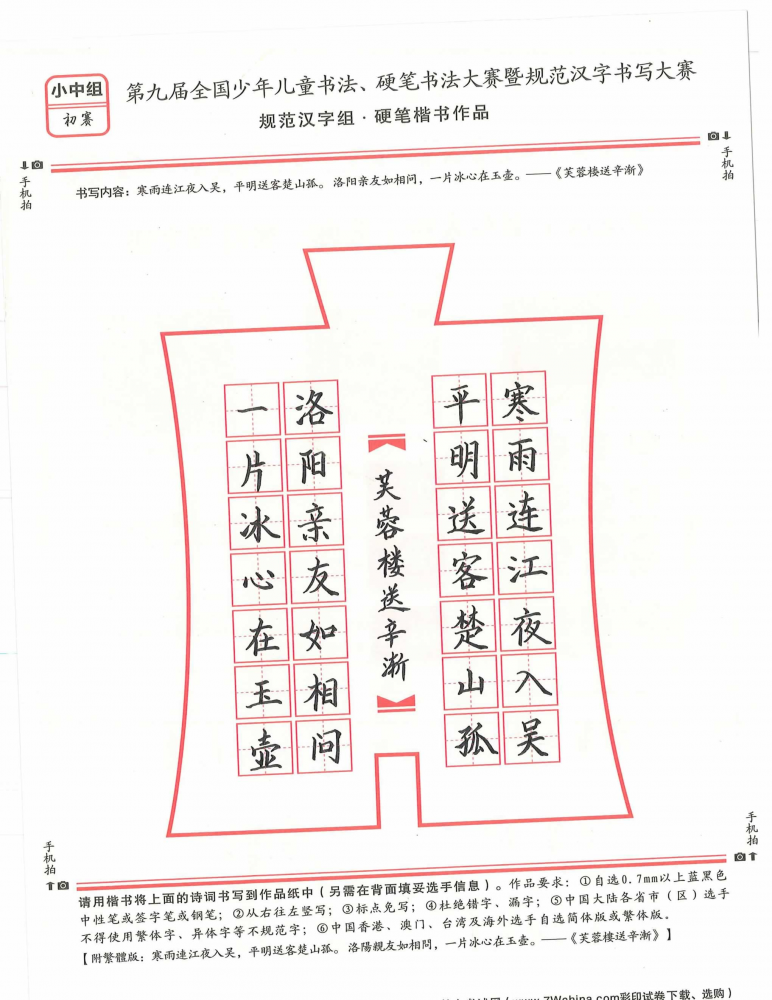 小中组
初赛
第九届全国少年儿童书法、硬笔书法大赛暨规范汉字书写大赛
规范汉字组·硬笔楷书作品
手机拍
手机拍
书写内容：寒雨连江夜入吴，平明送客楚山孤。洛阳亲友如相问，一片冰心在玉壶。——《芙蓉楼送辛渐》
寒雨连江夜入吴
平明送客楚山孤
芙蓉楼送辛渐
洛阳亲友如相问
一片冰心在玉壶
手机拍
手机拍
请用楷书将上面的诗词书写到作品纸中（另需在背面填妥选手信息）。作品要求：①自选0.7mm以上蓝黑色
中性笔或签字笔或钢笔；②从右往左竖写；③标点免写；④杜绝错字、漏字；⑤中国大陆各省市（区）选手
不得使用繁体字、异体字等不规范字；⑥中国香港、澳门、台湾及海外选手自选简体版或繁体版。
【附繁體版：寒雨連江夜入吴，平明送客楚山孤。洛陽親友如相問，一片冰心在玉壶。——《芙蓉楼送辛渐》】
（www.7Wchina.com彩印试卷下载、选购）